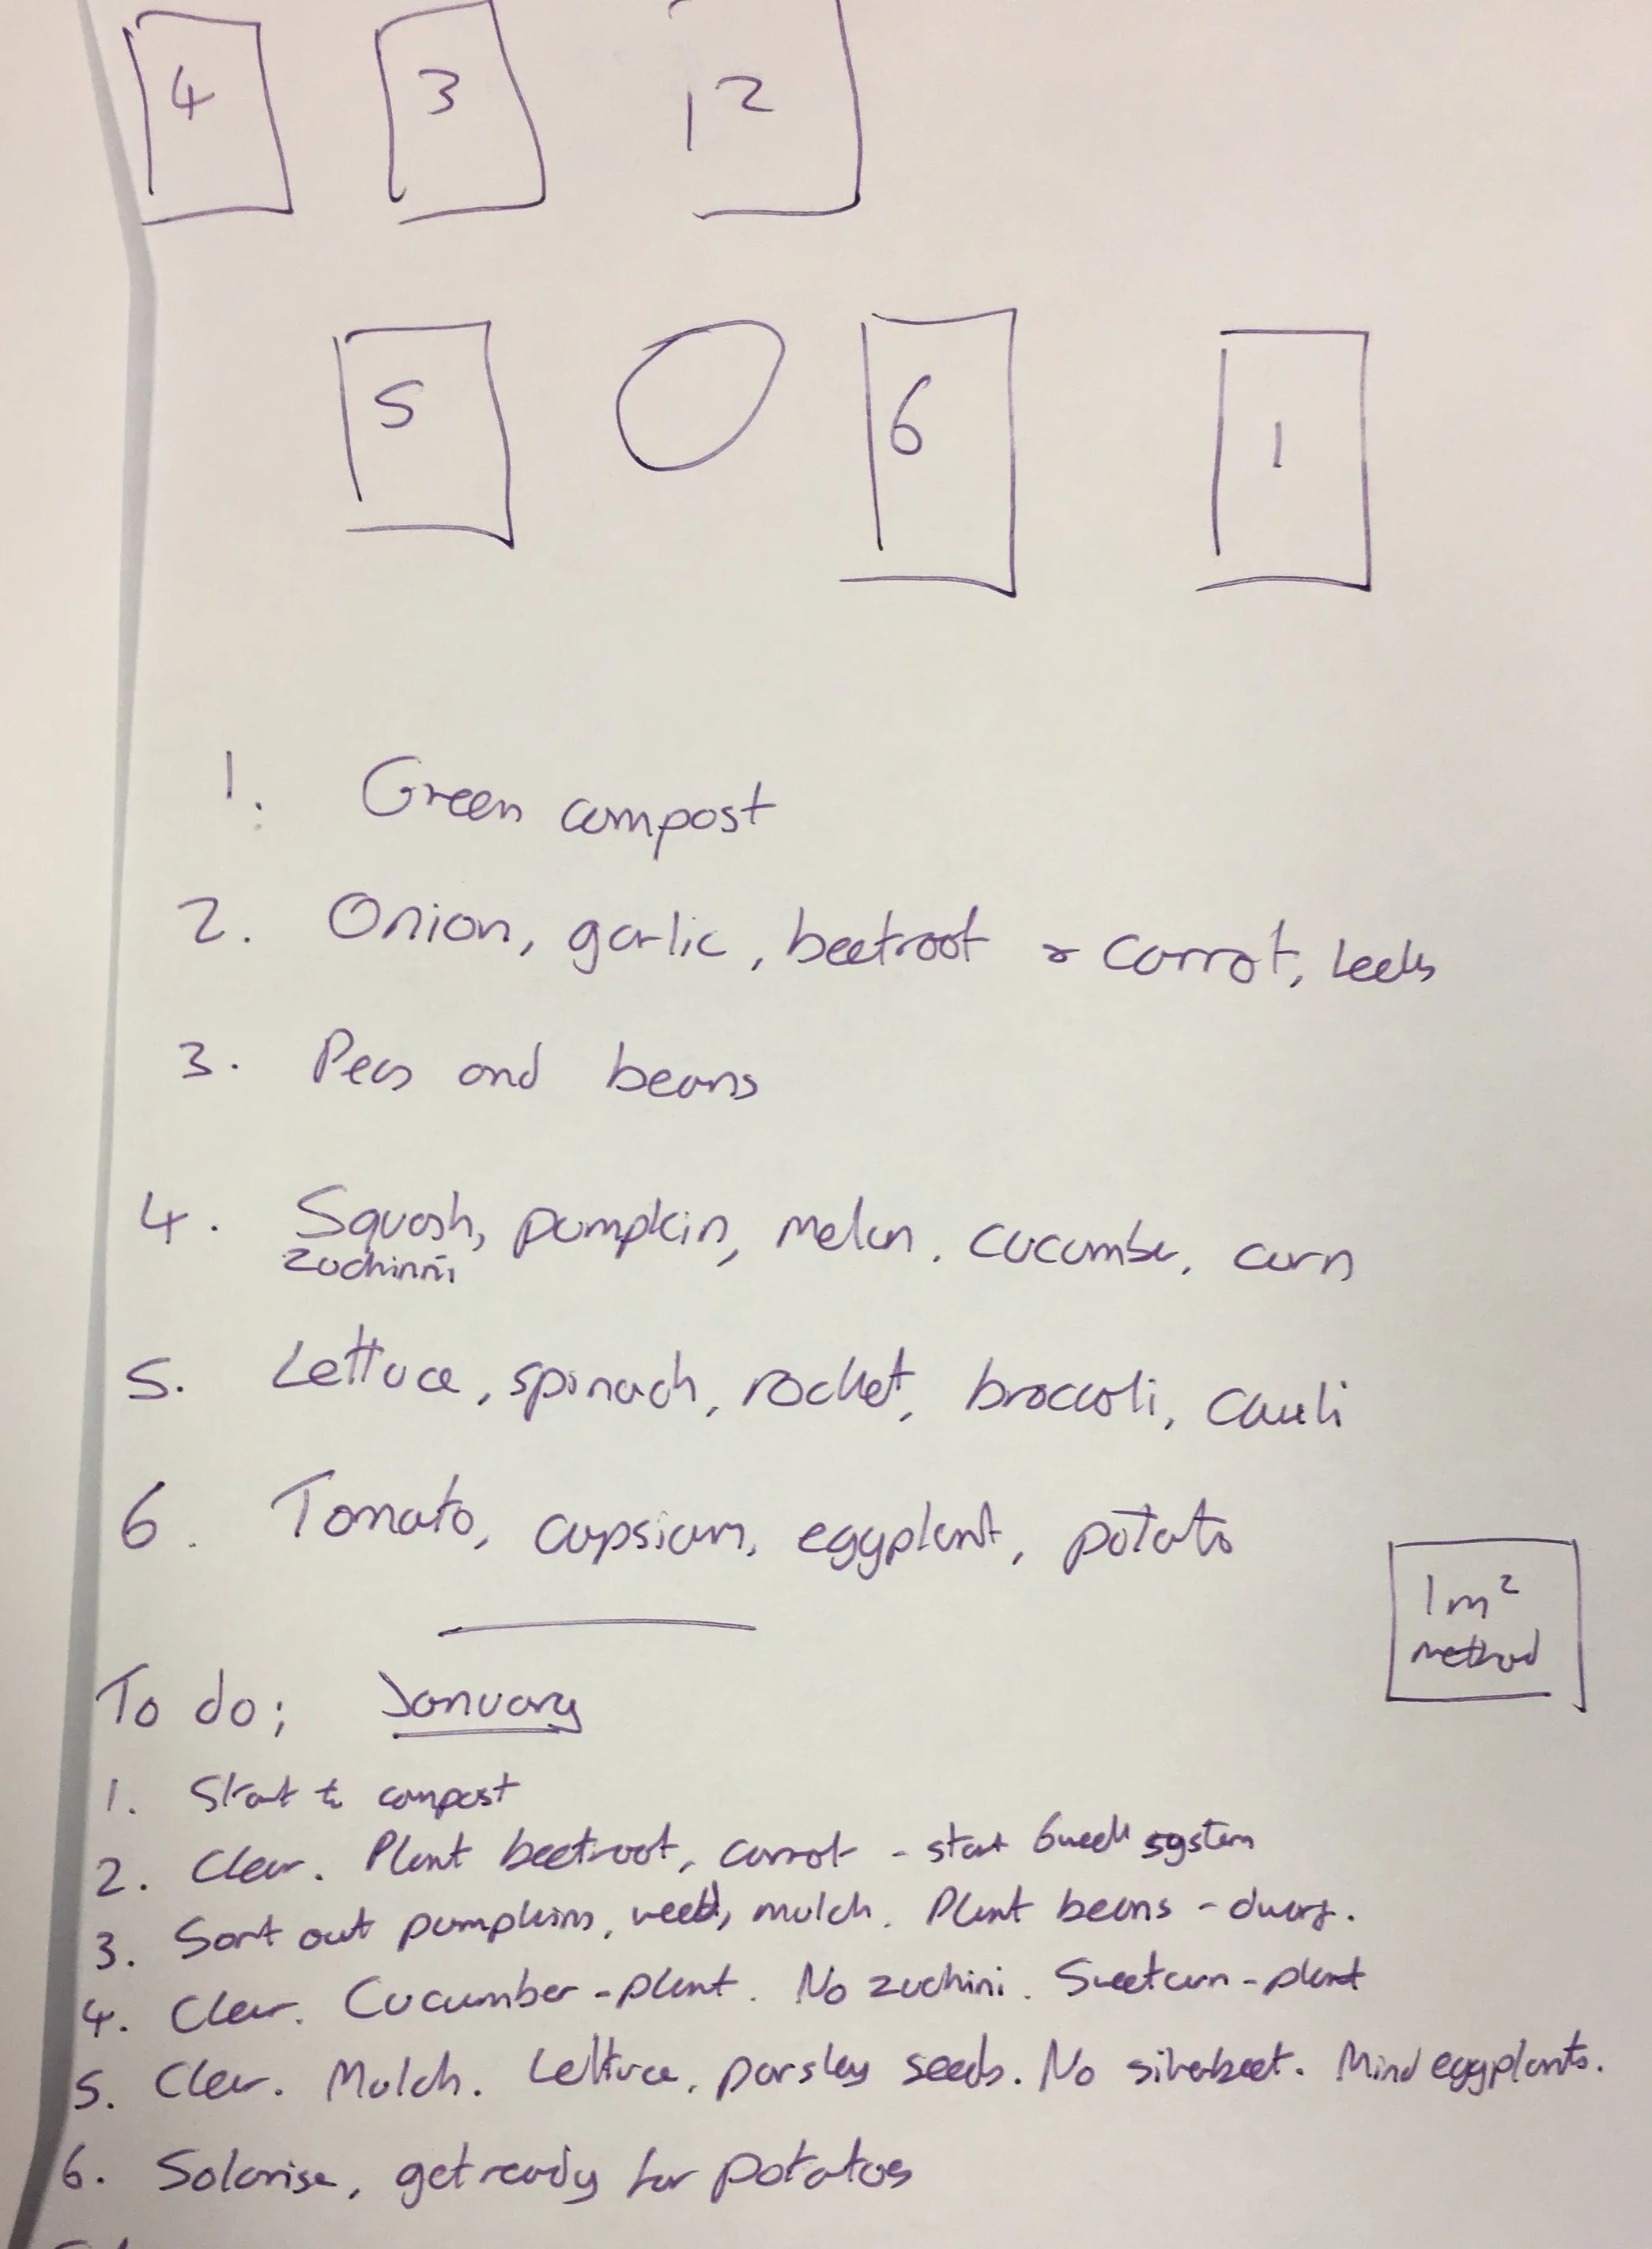 4 3 2
5 6 1
1. Green compost
2. Onion, garlic, beetroot & carrot, leeks
3. Peas and beans
4. Squash, pumpkin, melon, cucumber, corn
zuchinni
5. Lettuce, spinach, rocket, broccoli, cauli
6. Tomato, capsicum, eggplant, potato
1m²
method
To do; January
1. Start to compost
2. Clear. Plant beetroot, carrot - start 6 week system
3. Sort out pumpkins, weed, mulch. Plant beans - dwarf.
4. Clear. Cucumber - plant. No zuchini. Sweetcorn - plant
5. Clear. Mulch. Lettuce, parsley seeds. No silverbeet. Mind eggplants.
6. Solarise, get ready for potatoes